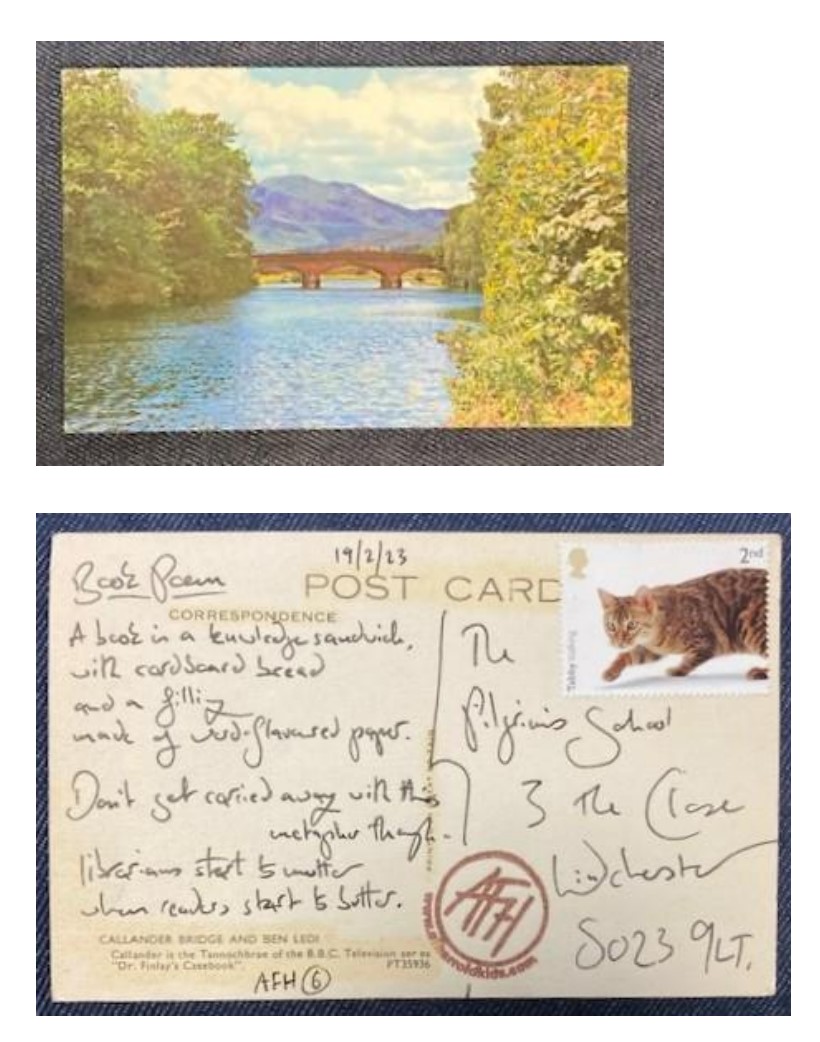 19/2/23
Book Poem
POST CARD
CORRESPONDENCE
A book is a knowledge sandwich,
with cardboard bread
and a filling
made of word-flavoured paper.
Don't get carried away with this
metaphor though.
librarians start to mutter
when readers start to butter.
CALLANDER BRIDGE AND BEN LEDI
Callander is the Tannochbrae of the B.B.C. Television series
"Dr. Finlay's Casebook".
PT35936
AFH 6
2nd
Tabby
The
Pilgrims School
3 The Close
Winchester
SO23 9LT.
AFH